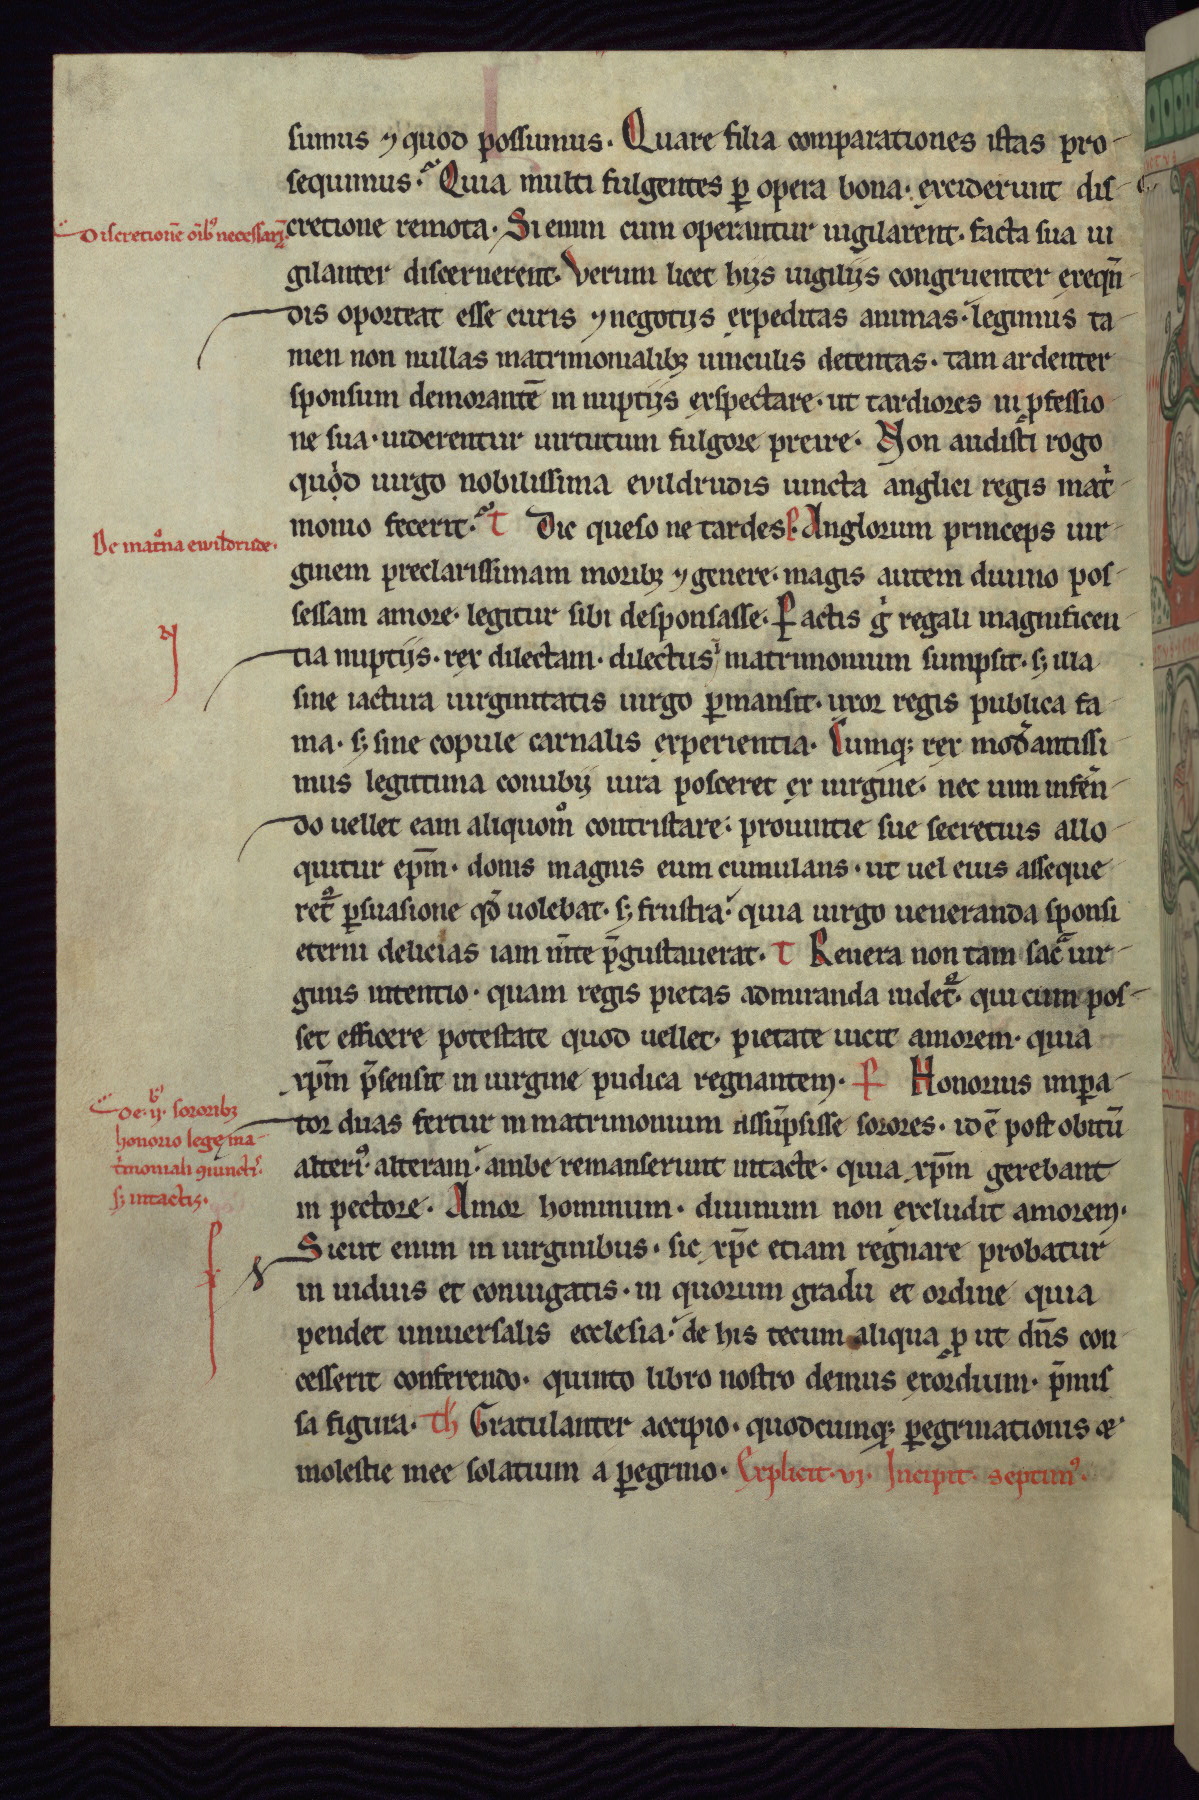 sumus ⁊ quod possumus. Quare filia comparationes istas pro-
sequimus. Quia multi fulgentes ꝑ opera bona. exciderunt dis-
Discretionē oīb' necessariā.
cretione remota. Si enim cum operantur uigilarent. facta sua ui
gilanter discernerent. Verum licet hijs uigilijs congruenter exeqn̄
dis oporteat esse curis ⁊ negotijs expeditas animas. legimus ta
men non nullas matrimonialibꝫ uinculis detentas. tam ardenter
sponsum demorantē in nuptijs exspectare. ut tardiores in ꝓfessio
ne sua. uiderentur uirtutum fulgore preire. Non audisti rogo
quod uirgo nobilissima evildrudis iuncta anglici regis mat͛
monio fecerit. T Dic queso ne tardes. P Anglorum princeps uir
De mat͛ona ewildrude.
ginem preclarissimam moribꝫ ⁊ genere. magis autem diuino pos-
sessam amore. legitur sibi desponsasse. Factis g̊ regali magnificen
tia nuptijs. rex dilectam. dilectus matrimonium sumpsit. sꝫ illa
sine iactura uirginitatis uirgo ꝑmansit. uxor regis publica fa
ma. sꝫ sine copule carnalis experientia. Cumqꝫ rex mod͛antissi
mus legittima conubij iura posceret ex uirgine. nec uim inferē
do uellet eam aliquom̊ contristare. prouintie sue secretius allo
quitur ep̄m. donis magnis eum cumulans. ut uel eius asseque
ret᷑ ꝑsuasione qd̄ uolebat. sꝫ frustra. quia uirgo ueneranda sponsi
eterni delicias iam m̄te p̄gustauerat. T Reuera non tam sac͛ uir-
ginis intentio. quam regis pietas admiranda uidet᷑. qui cum pos-
set efficere potestate quod uellet. pietate uicit amorem. quia
xp̄m p̄sensit in uirgine pudica regnantem. P Honorius impa-
De .ij. sororibꝫ
honorio lege ma-
t͛moniali ꝯiunctis.
sꝫ intactis.
tor duas fertur in matrimonium assūpsisse sorores. id ē post obitū
alteri' alteram. ambe remanserunt intacte. quia xp̄m gerebant
in pectore. Amor hominum. diuinum non excludit amorem.
Sicut enim in uirginibus. sic xp̄c etiam regnare probatur
in uiduis et coniugatis. in quorum gradu et ordine quia
pendet uniuersalis ecclesia. de his tecum aliqua ꝓ ut dn̄s con
cesserit conferendo. quinto libro nostro demus exordium. p̄mis
sa figura. Th Gratulanter accipio. quodcumqꝫ ꝑegrinationis &
molestie mee solatium a ꝑegrino. Explicit .vi. Incipit septim'.